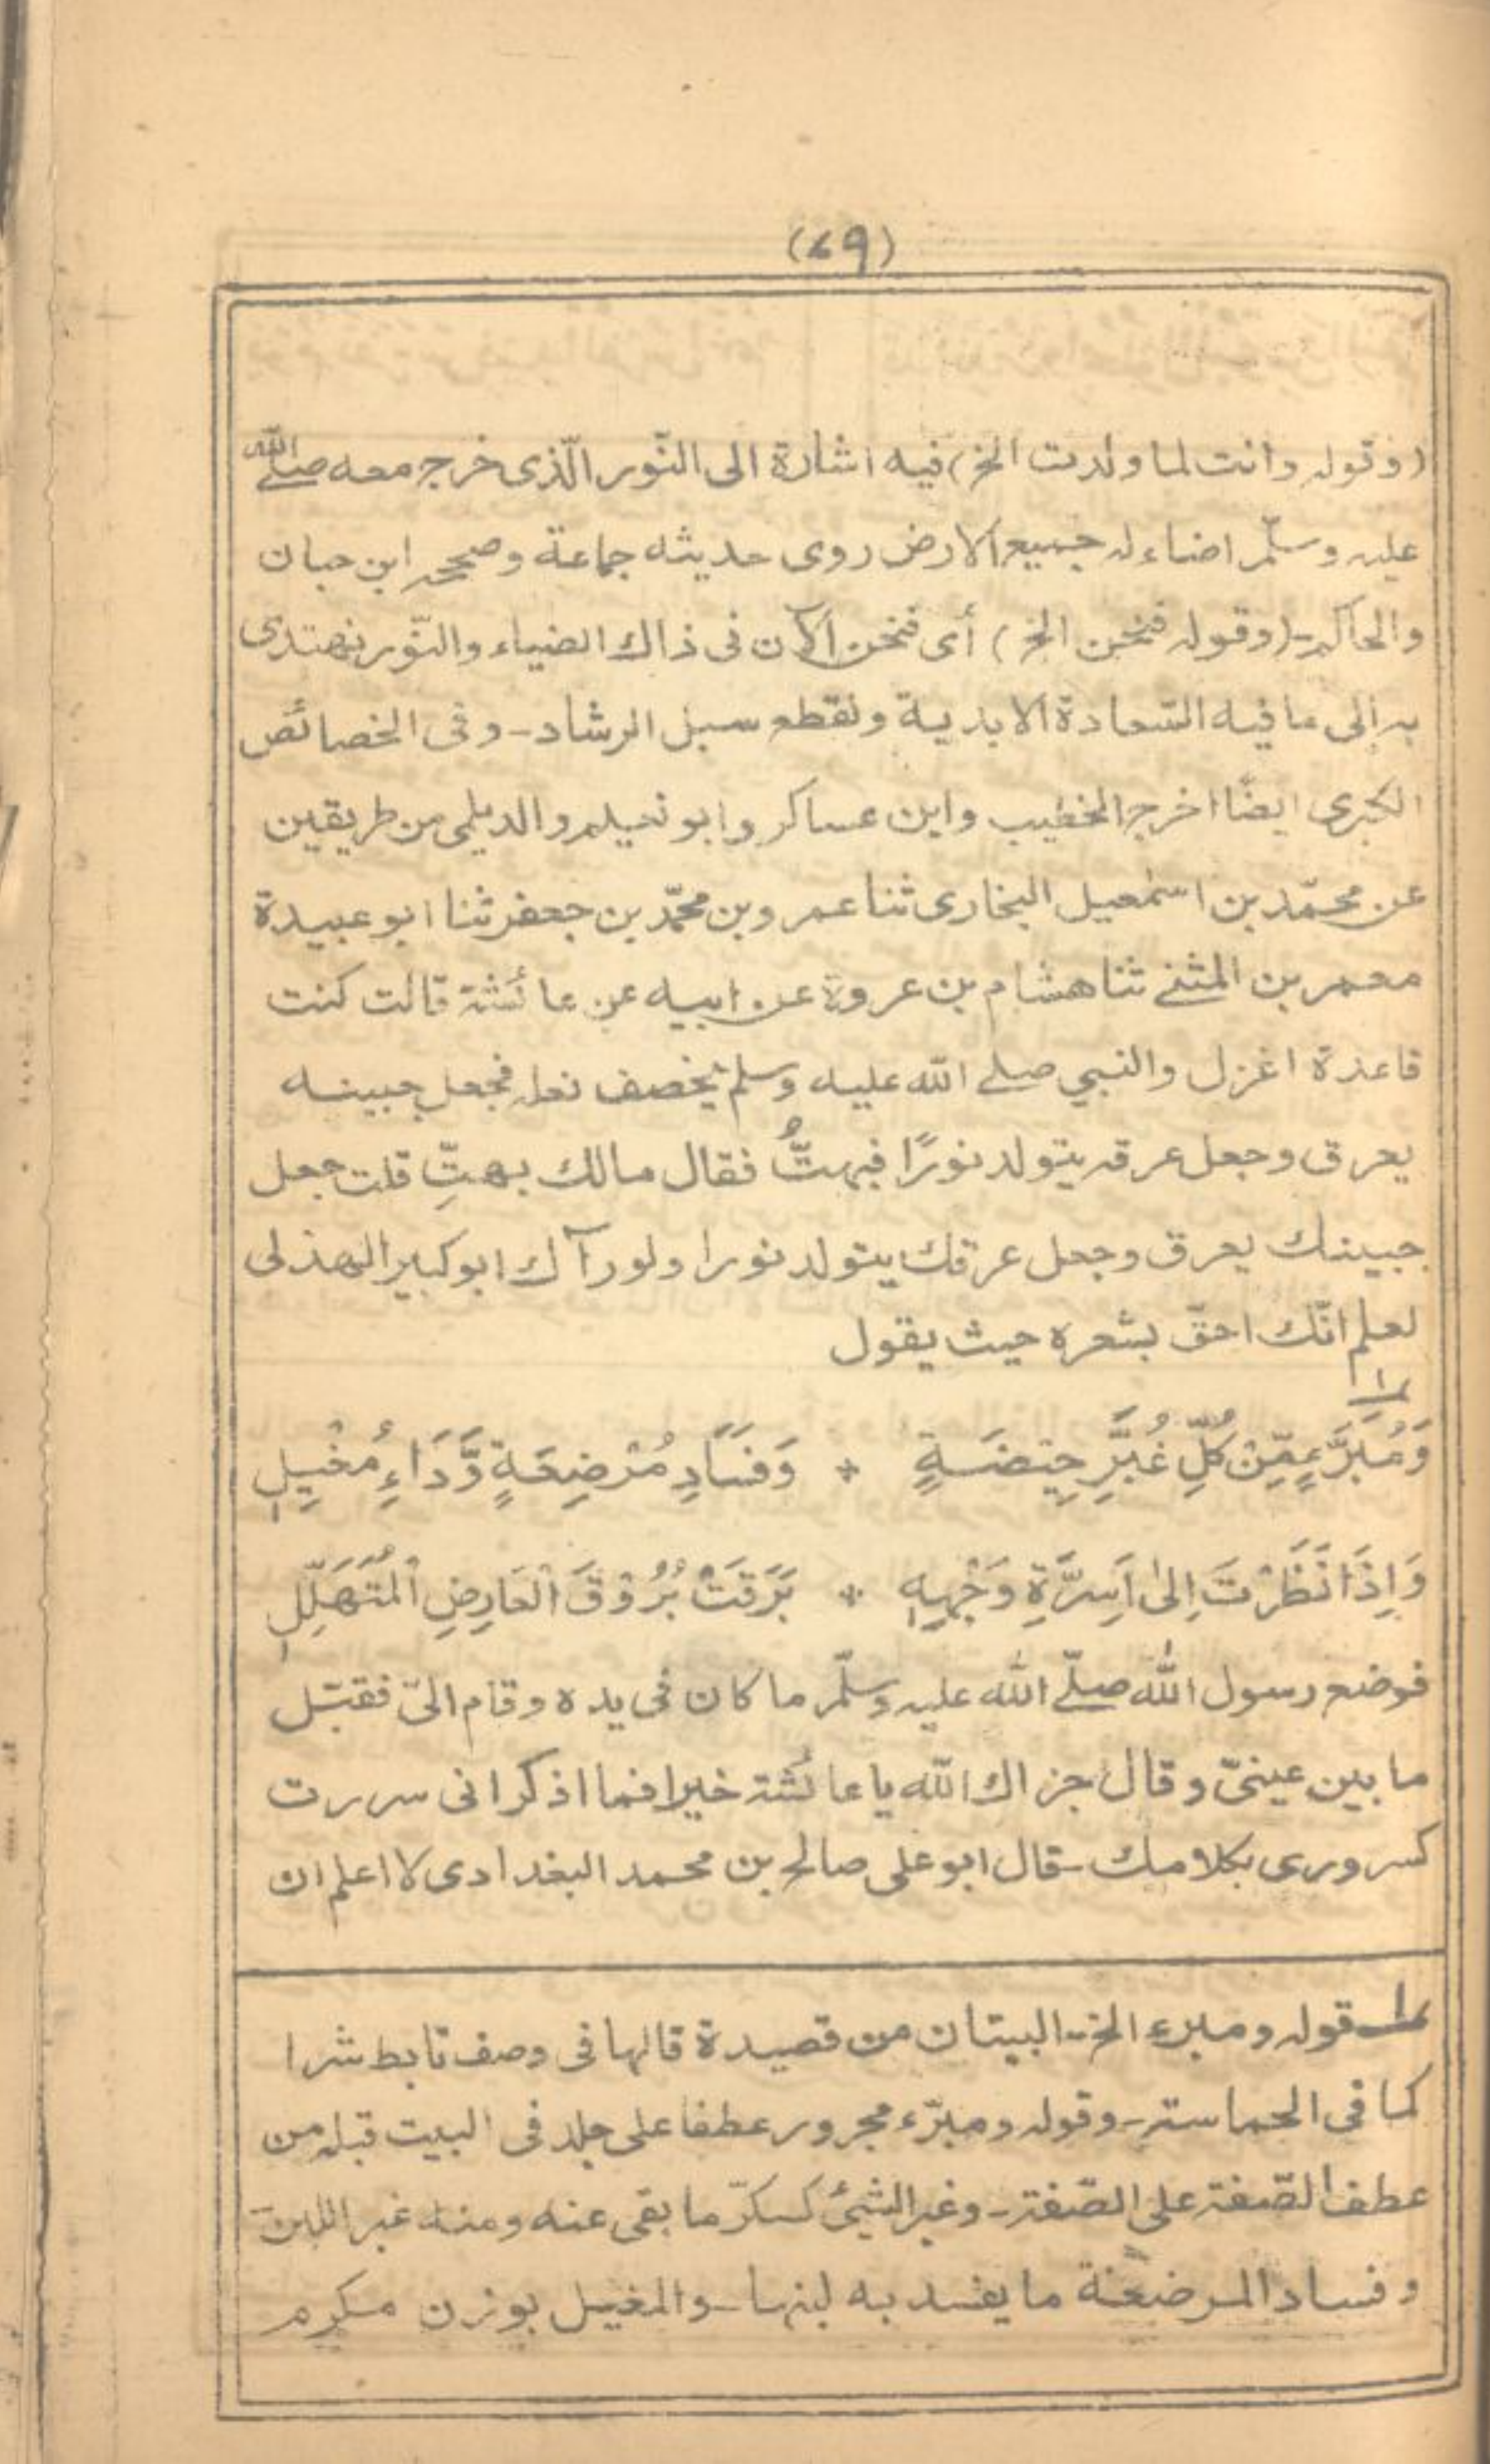 (٦٩)
(وقوله وانت لما ولدت الخ) فيه اشارة الى النّور الّذى خرج معه صلے الله
عليه وسلّم اضاء له جميع الارض روى حديثه جماعة وصححه ابن حبان
والحاكم - (وقوله فنحن الخ) أى فنحن الآن فى ذاك الضياء والنّور نهتدى
به الى ما فيه السّعادة الابدية ونقطع سبل الرشاد - وفى الخصائص
الكبرى ايضًا اخرج الخطيب وابن عساكر وابو نعيم والديلمى من طريقين
عن محمّد بن اسمٰعيل البخارى ثنا عمرو بن محمّد بن جعفر ثنا ابو عبيدة
معمر بن المثنے ثنا هشام بن عروة عن ابيه عن عائشة قالت كنت
قاعدة اغزل والنبي صلے الله عليه وسلم يخصف نعله فجعل جبينه
يعرق وجعل عرقه يتولد نورًا فبهتُّ فقال مالك بهتِّ قلت جعل
جبينك يعرق وجعل عرقك يتولد نورا ولو رآك ابو كبير الهذلى
لعلم انّك احقّ بشعره حيث يقول
١
وَمُبَرَّءٍ مِّنْ كُلِّ غُبَّرِ حِيْضَةٍ * وَفَسَادِ مُرْضِعَةٍ وَّدَاءٍ مُغْيِلِ
وَاِذَا نَظَرْتَ اِلٰى اَسِرَّةِ وَجْهِهٖ * بَرَقَتْ بُرُوْقَ الْعَارِضِ الْمُتَهَلِّلِ
فوضع رسول الله صلّے الله عليه وسلّم ما كان فى يده وقام الىّ فقبّل
ما بين عينىّ وقال جزاك الله يا عائشة خيرا فما اذكر انى سررت
كسرورى بكلامك - قال ابو على صالح بن محمد البغدادى لا اعلم ان
١ قوله ومبرء الخ - البيتان من قصيدة قالها فى وصف تابط شرا
كما فى الحماسة - وقوله ومبرّء مجرور عطفا على جلد فى البيت قبله من
عطف الصّفة على الصّفة - وغبر الشيئ كسكرّ ما بقى عنه ومنه غبر اللبن
وفساد المرضعة ما يفسد به لبنها - والمغيل بوزن مكرم